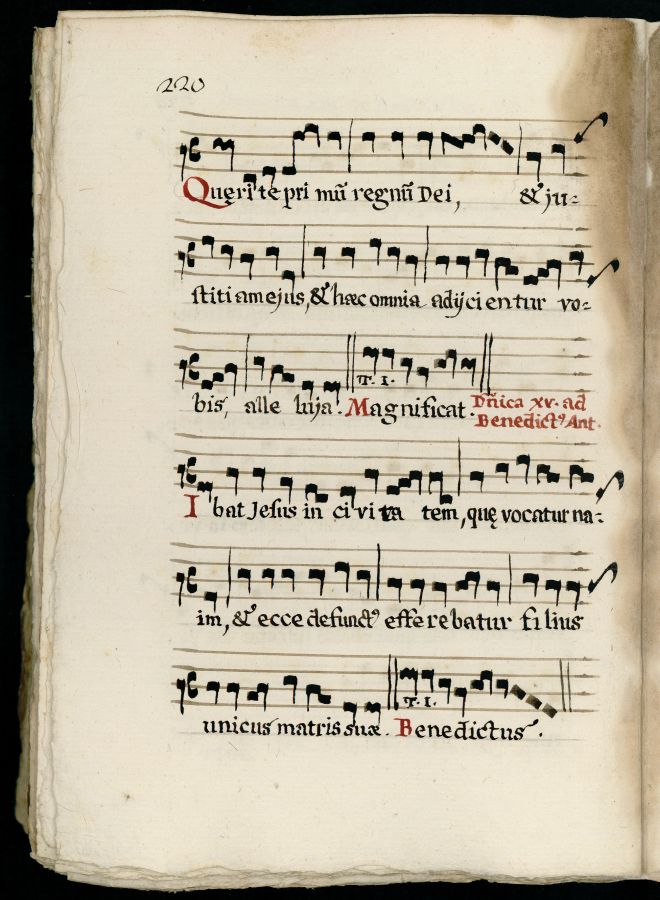 220
Quęrite pri mũ regnũ Dei, & ju-
stitiam ejus, & hæc omnia adijcientur vo-
T. I.
bis, alle luja. Magnificat. Dñica XV. ad
Benedict⁹ Ant.
I bat Jesus in civita tem, quę vocatur na-
im, & ecce defunct⁹ efferebatur filius
T. I.
unicus matris suæ. Benedictus.